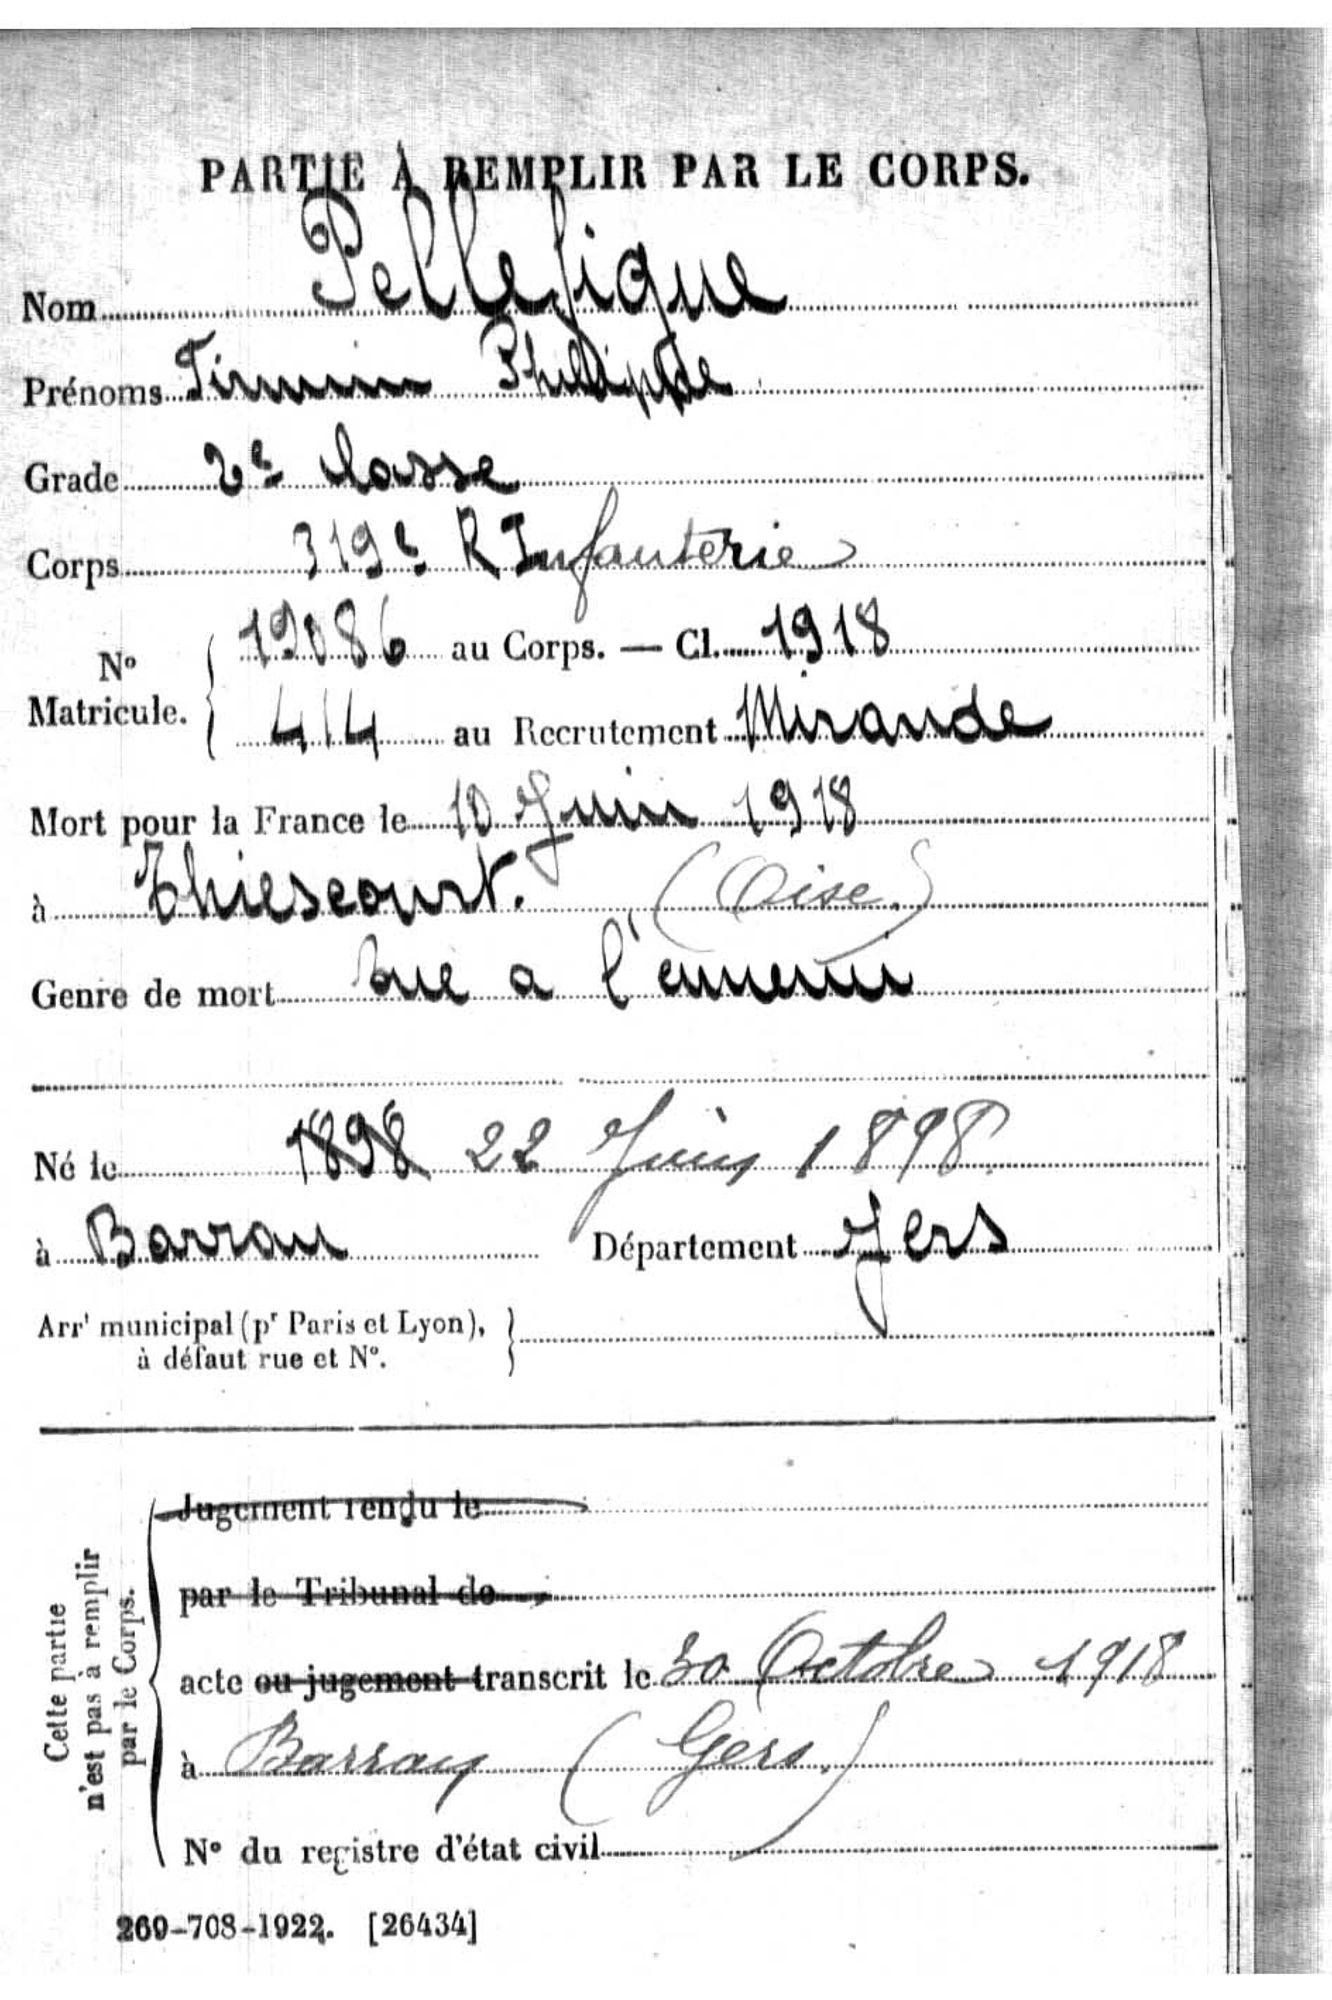 PARTIE À REMPLIR PAR LE CORPS.
Nom Pellefigue
Prénoms Firmin Philippe
Grade 2e classe
Corps 319e R Infanterie
No Matricule. 19086 au Corps. — Cl. 1918
414 au Recrutement Mirande
Mort pour la France le 10 Juin 1918
à Thiescourt. (Oise)
Genre de mort tué a l'ennemi
Né le 1898 22 Juin 1898
à Barran Département Gers
Arrt municipal (pr Paris et Lyon),
à défaut rue et No.
Cette partie
n'est pas à remplir
par le Corps.
Jugement rendu le
par le Tribunal de
acte ou jugement transcrit le 30 Octobre 1918
à Barran (Gers.)
No du registre d'état civil
269-708-1922. [26434]